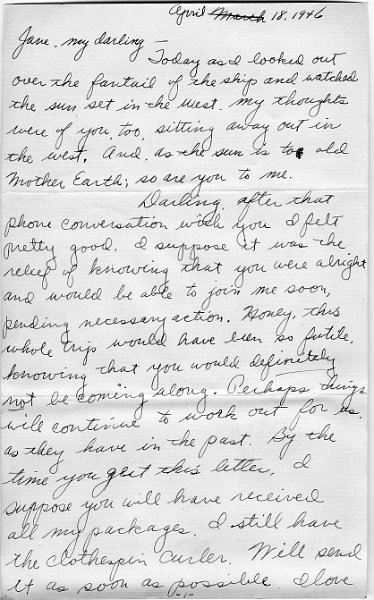 April March 18, 1946
Jane, my darling —
Today as I looked out
over the fantail of the ship and watched
the sun set in the west, my thoughts
were of you too, sitting away out in
the west. And, as the sun is to old
Mother Earth; so are you to me.
Darling, after that
phone conversation with you I felt
pretty good. I suppose it was the
relief of knowing that you were alright
and would be able to join me soon,
pending necessary action. Honey, this
whole trip would have been so futile,
knowing that you would definitely
not be coming along. Perhaps things
will continue to work out for us,
as they have in the past. By the
time you get this letter, I
suppose you will have received
all my packages. I still have
the clothespin curler. Will send
it as soon as possible. I love
-1-